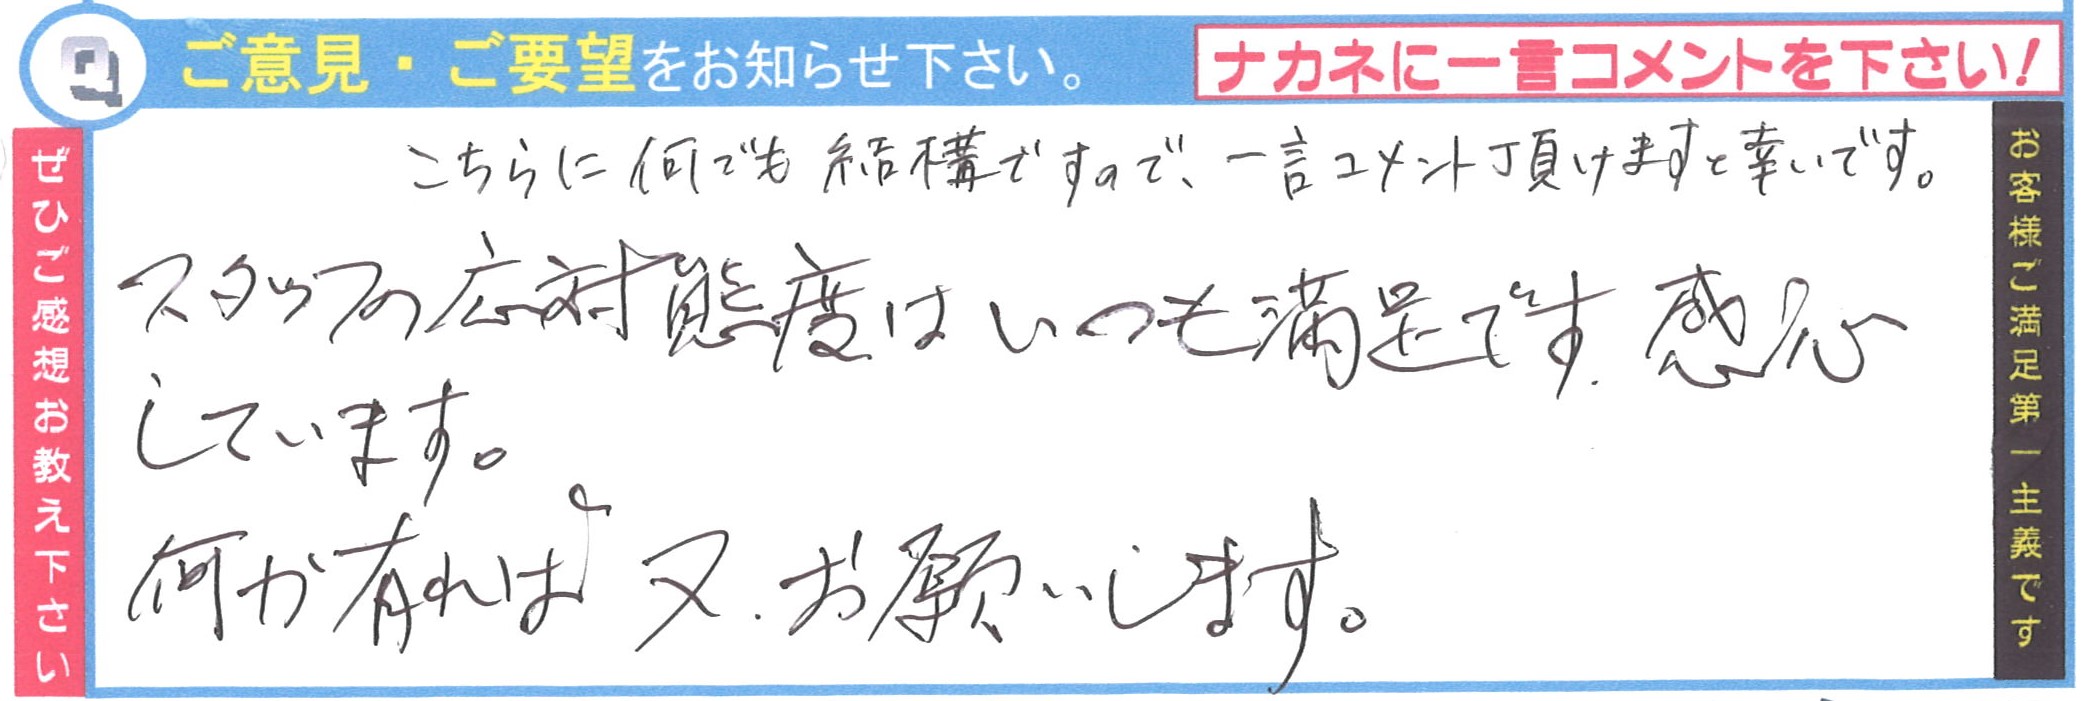 Q ご意見・ご要望をお知らせ下さい。
ナカネに一言コメントを下さい!
ぜひご感想お教え下さい
こちらに何でも結構ですので、一言コメント頂けますと幸いです。
スタッフの応対態度はいつも満足です。感心
しています。
何か有れば又、お願いします。
お客様ご満足第一主義です